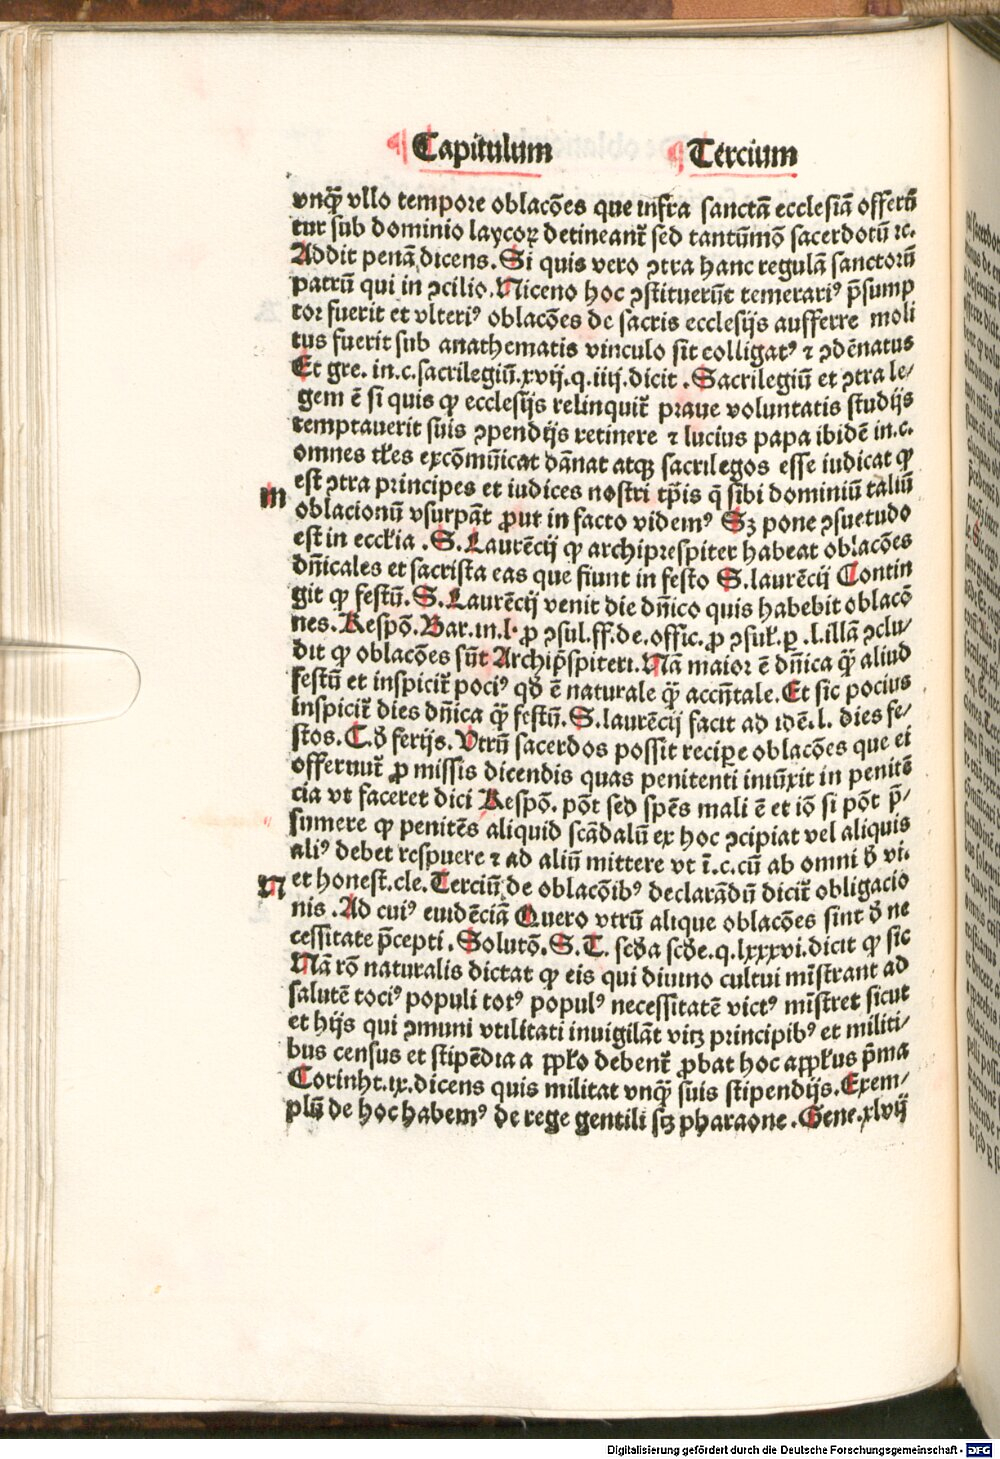 ¶ Capitulum ¶ Tercium
vnqꝫ̃ vllo tempore oblacões que infra sanctã ecclesiã offerũ
tur sub dominio laycoꝝ detineant̃ sed tantũmõ sacerdotũ ⁊c.
Addit penã dicens. Si quis vero ↄtra hanc regulã sanctorũ
patrũ qui in ↄcilio. Niceno hoc ↄstituerũt temerariꝰ p̃sump
tor fuerit et vlteriꝰ oblacões de sacris ecclesijs aufferre moli
tus fuerit sub anathematis vinculo sit colligatꝰ ⁊ ↄdẽnatus
Et gre. in. c. sacrilegiũ. xvij. q. iiij. dicit . Sacrilegiũ et ↄtra le⸗
gem ẽ si quis ꝙ ecclesijs relinquit̃ praue voluntatis studijs
temptauerit suis ↄpendijs retinere ⁊ lucius papa ibidẽ in. c.
omnes tl̃es excõmũicat dãnat atqꝫ sacrilegos esse iudicat ꝙ
m est ↄtra principes et iudices nostri tp̃is q̃ sibi dominiũ taliũ
oblacionũ vsurpãt ꝓut in facto videmꝰ Sꝫ pone ↄsuetudo
est in eccl̃ia . S. Laurẽcij ꝙ archiprespiter habeat oblacões
dñicales et sacrista eas que fiunt in festo S. laurẽcij Contin
git ꝙ festũ. S. Laurẽcij venit die dñico quis habebit oblacõ
nes. Respõ. Bar. in. l. ꝓ ↄsul. ff. de. offic. ꝓ ↄsul̃. ꝑ . l. illã ↄclu⸗
dit ꝙ oblacões sũt Archip̃spiteri. Nã maior ẽ dñica qꝫ̃ aliud
festũ et inspicit̃ pociꝰ qð ẽ naturale qꝫ̃ accñtale. Et sic pocius
inspicit̃ dies dñica qꝫ̃ festũ. S. laurẽcij facit ad idẽ. l. dies fe⸗
stos. C. ð ferijs. Vtrũ sacerdos possit recipe oblacões que ei
offerunt̃ ꝓ missis dicendis quas penitenti iniũxit in penitẽ
cia vt faceret dici Respõ. põt sed spẽs mali ẽ et iõ si põt p̃⸗
sumere ꝙ penitẽs aliquid scãdalũ ex hoc ↄcipiat vel aliquis
aliꝰ debet respuere ⁊ ad aliũ mittere vt ĩ. c. cũ ab omni ð vi.
n et honest. cle. Terciũ de oblacõibꝰ declarãdũ dicit̃ obligacio
nis . Ad cuiꝰ euidẽciã Quero vtrũ alique oblacões sint ð ne
cessitate p̃cepti . Solutõ. S. T. scða scðe. q. lxxxvi. dicit ꝙ sic
Nã rõ naturalis dictat ꝙ eis qui diuino cultui mĩstrant ad
salutẽ tociꝰ populi totꝰ populꝰ necessitatẽ victꝰ mĩstret sicut
et hijs qui ↄmuni vtilitati inuigilãt vitꝫ principibꝰ et militi⸗
bus census et stipẽdia a ꝓpl̃o debent̃ ꝓbat hoc appl̃us p̃ma
Corinht. ix. dicens quis militat vnqꝫ̃ suis stipendijs. Exem⸗
plũ de hoc habemꝰ de rege gentili sꝫ pharaone . Gene. xlvij
Digitalisierung gefördert durch die Deutsche Forschungsgemeinschaft - DFG